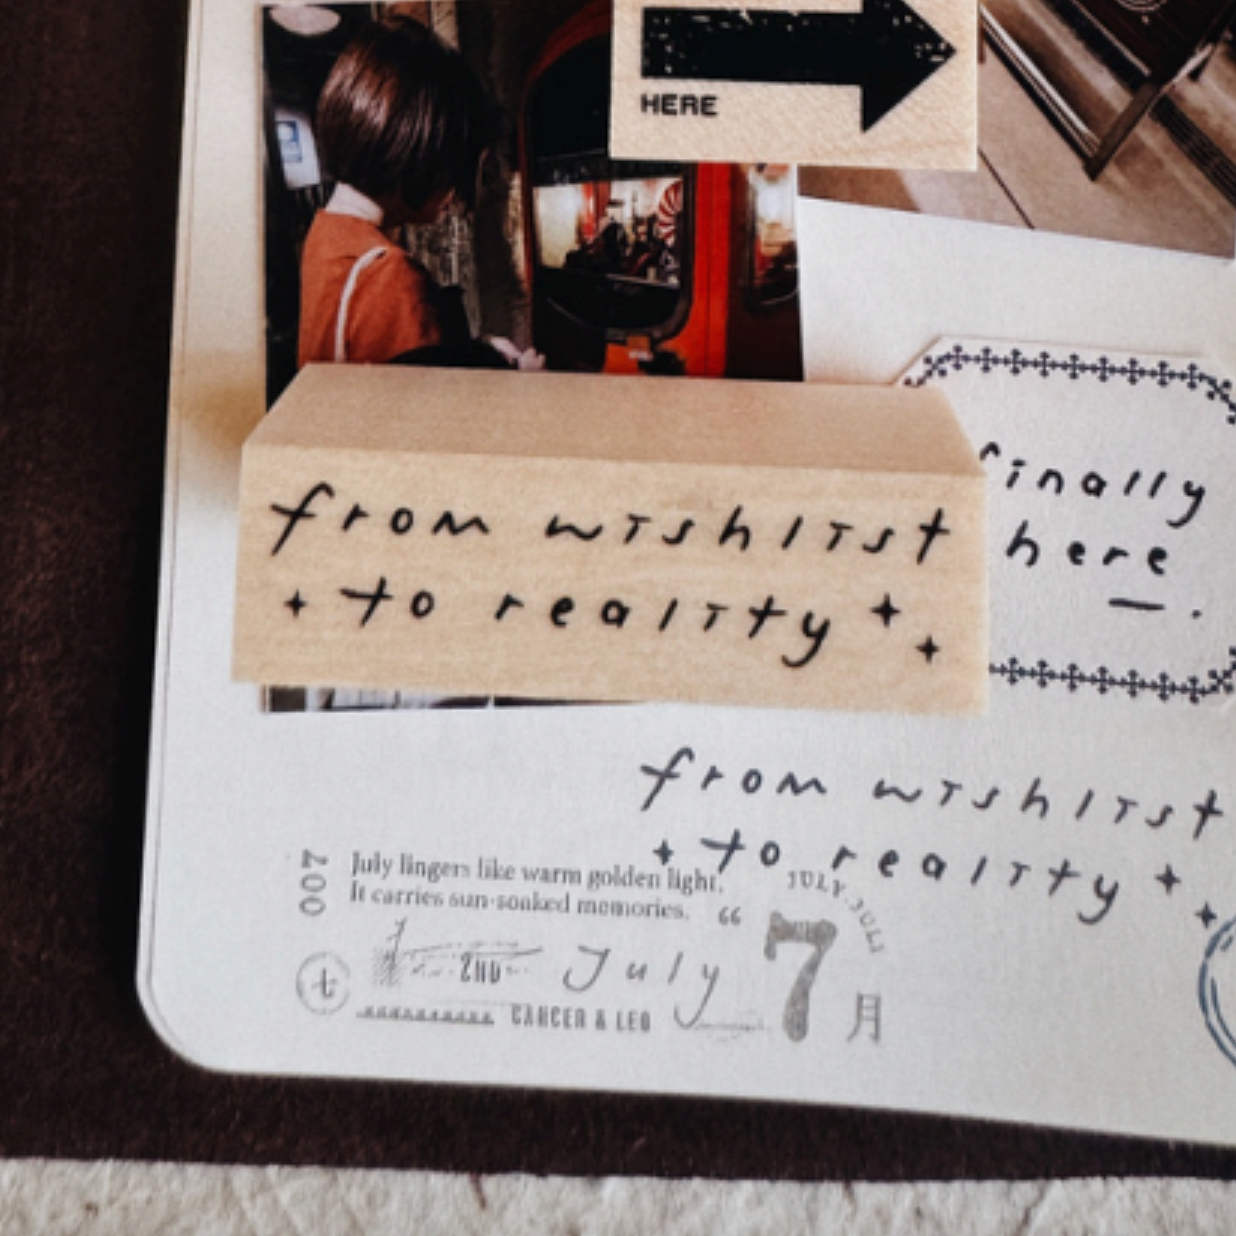 HERE
from wishlist
to reality
finally
here.
from wishlist
to reality
007
July lingers like warm golden light.
It carries sun-soaked memories.
JULY.JULI
“
7
月
2ND
July
七
CANCER & LEO